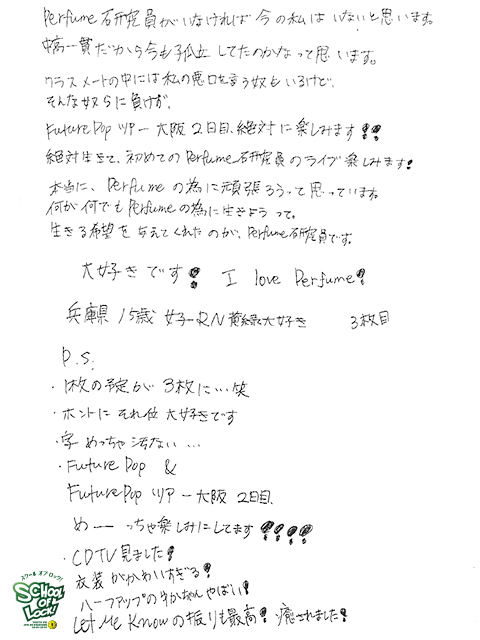 Perfume研究員がいなければ今の私はいないと思います。
中高一貫だから今も孤立してたのかなって思います。
クラスメートの中には私の悪口を言う奴もいるけど、
そんな奴らに負けずが、
FuturePopツアー大阪2日目、絶対に楽しみます!!
絶対生きて、初めてのPerfume研究員のライブ楽しみます!
本当に、Perfumeの為に頑張ろうって思っています。
何が何でもPerfumeの為に生きようって。
生きる希望を与えてくれたのが、Perfume研究員です。
大好きです! I love Perfume!
兵庫県 15歳 女子 RN 黄緑大好き 3枚目
P.S.
・1枚の予定が3枚に…笑
・ホントにそれ位大好きです
・字めっちゃ汚ない…
・Future Pop &
FuturePopツアー大阪2日目、
め――っちゃ楽しみにしてます!!!!
・CDTV見ました!
衣装がかわいすぎる!
ハーフアップのゆかちゃんやばい!
Let Me Knowの振りも最高! 癒されました!
スクールオブロック!
SCHOOL OF LOCK!